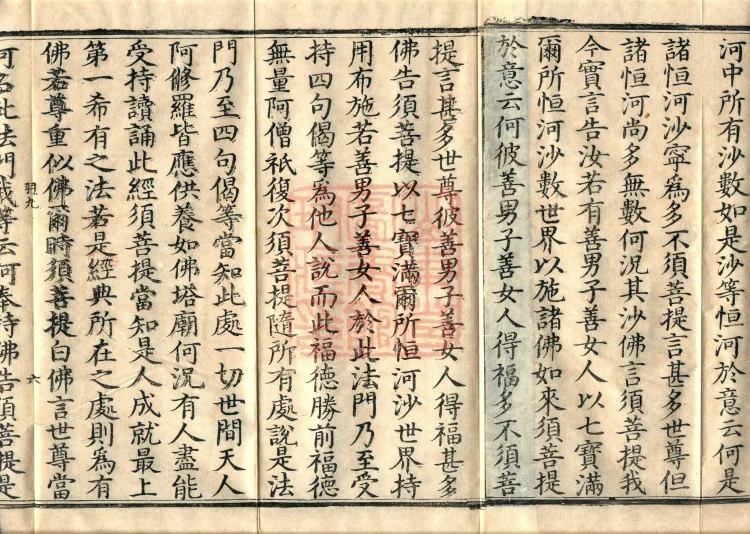 河中所有沙數如是沙等恒河於意云何是
諸恒河沙寧爲多不須菩提言甚多世尊但
諸恒河尚多無數何況其沙佛言須菩提我
今實言告汝若有善男子善女人以七寶滿
爾所恒河沙數世界以施諸佛如來須菩提
於意云何彼善男子善女人得福多不須菩
提言甚多世尊彼善男子善女人得福甚多
佛告須菩提以七寶滿爾所恒河沙世界持
用布施若善男子善女人於此法門乃至受
持四句偈等爲他人說而此福德勝前福德
無量阿僧祇復次須菩提隨所有處說是法
門乃至四句偈等當知此處一切世間天人
阿脩羅皆應供養如佛塔廟何況有人盡能
受持讀誦此經須菩提當知是人成就最上
第一希有之法若是經典所在之處則爲有
佛若尊重似佛爾時須菩提白佛言世尊當
羽九 六
何名此法門我等云何奉持佛告須菩提是